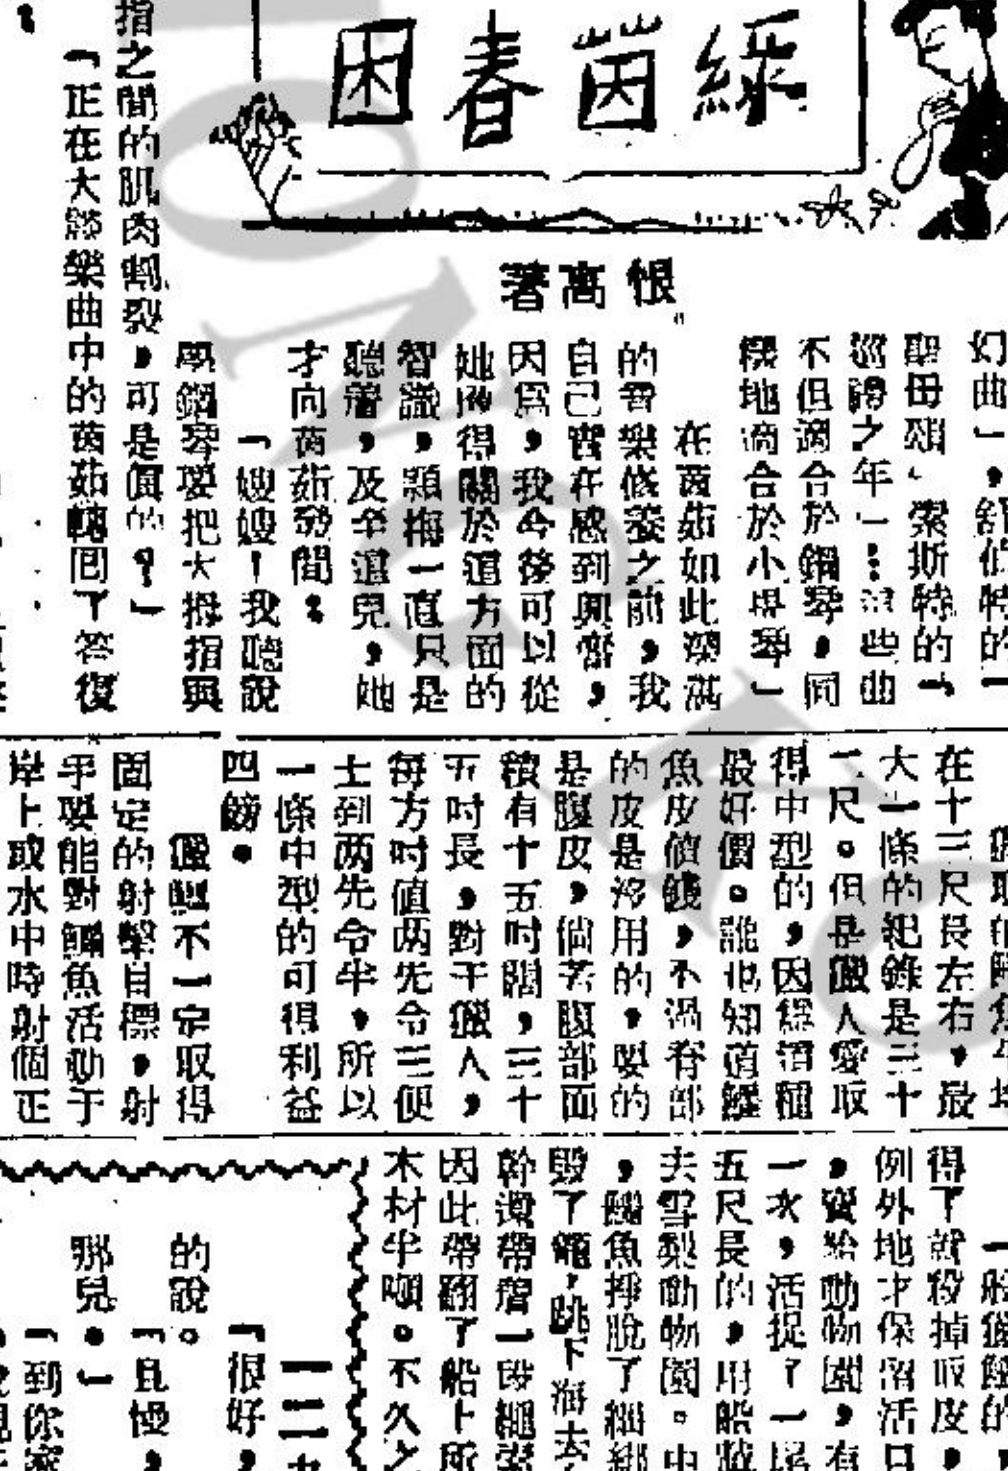 綠茵春困
恨高著
幻曲」，舒伯特的「
聖母頌」索斯特的「
巡禮之年」…這些曲
不但適合於鋼琴，同
樣地適合於小提琴」
在茵茹如此深滿
的音樂修養之前，我
自己實在感到興奮，
因爲，我今後可以從
她處得關於這方面的
智識，顯梅一直只是
聽着，及至這兒，她
才向茵茹發問：
「嫂嫂！我聽說
學鋼琴要把大拇指與
指之間的肌肉割裂，可是眞的？」
「正在大談樂曲中的茵茹轉回了答復
在十三尺長左右，最
大一條的紀錄是三十
二尺。但是獵人愛取
得中型的，因爲這種
最好價。誰也知道鱷
魚皮値錢，不過脊部
的皮是沒用的，要的
是腹皮，倘若腹部面
積有十五吋闊，三十
五吋長，對于獵人，
每方吋値两先令三便
士到两先令半，所以
一條中型的可得利益
四鎊。
獵鱷不一定取得
固定的射擊目標，射
手要能對鱷魚活動于
岸上或水中時射個正
一般獵鱷的
得了就殺掉取皮，
例外地才保留活口
，賣給動物園，有
一次，活捉了一尾
五尺長的，用船載
去雪梨動物園。中
，鱷魚掙脫了綑綁
毀了籠，跳下海去
幹還帶着一段繩索
因此帶翻了船上所
木材半噸。不久之
一二九
「很好，
的說。
「且慢，
那兒。」
「到你家